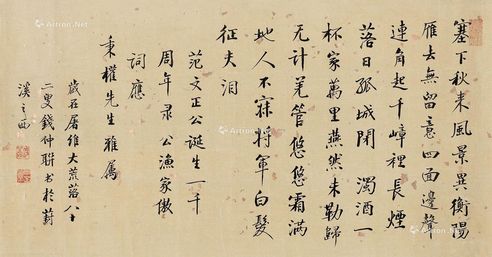 塞下秋来風景異衡陽
雁去無留意四面邊聲
連角起千嶂裡長煙
落日孤城閉濁酒一
杯家萬里燕然未勒歸
无計羌管悠悠霜满
地人不寐將軍白髮
征夫泪
范文正公誕生一千
周年录公漁家傲
词應
秉權先生雅属
歲在屠維大荒落八十
二叟錢仲聯書於葑
溪之西